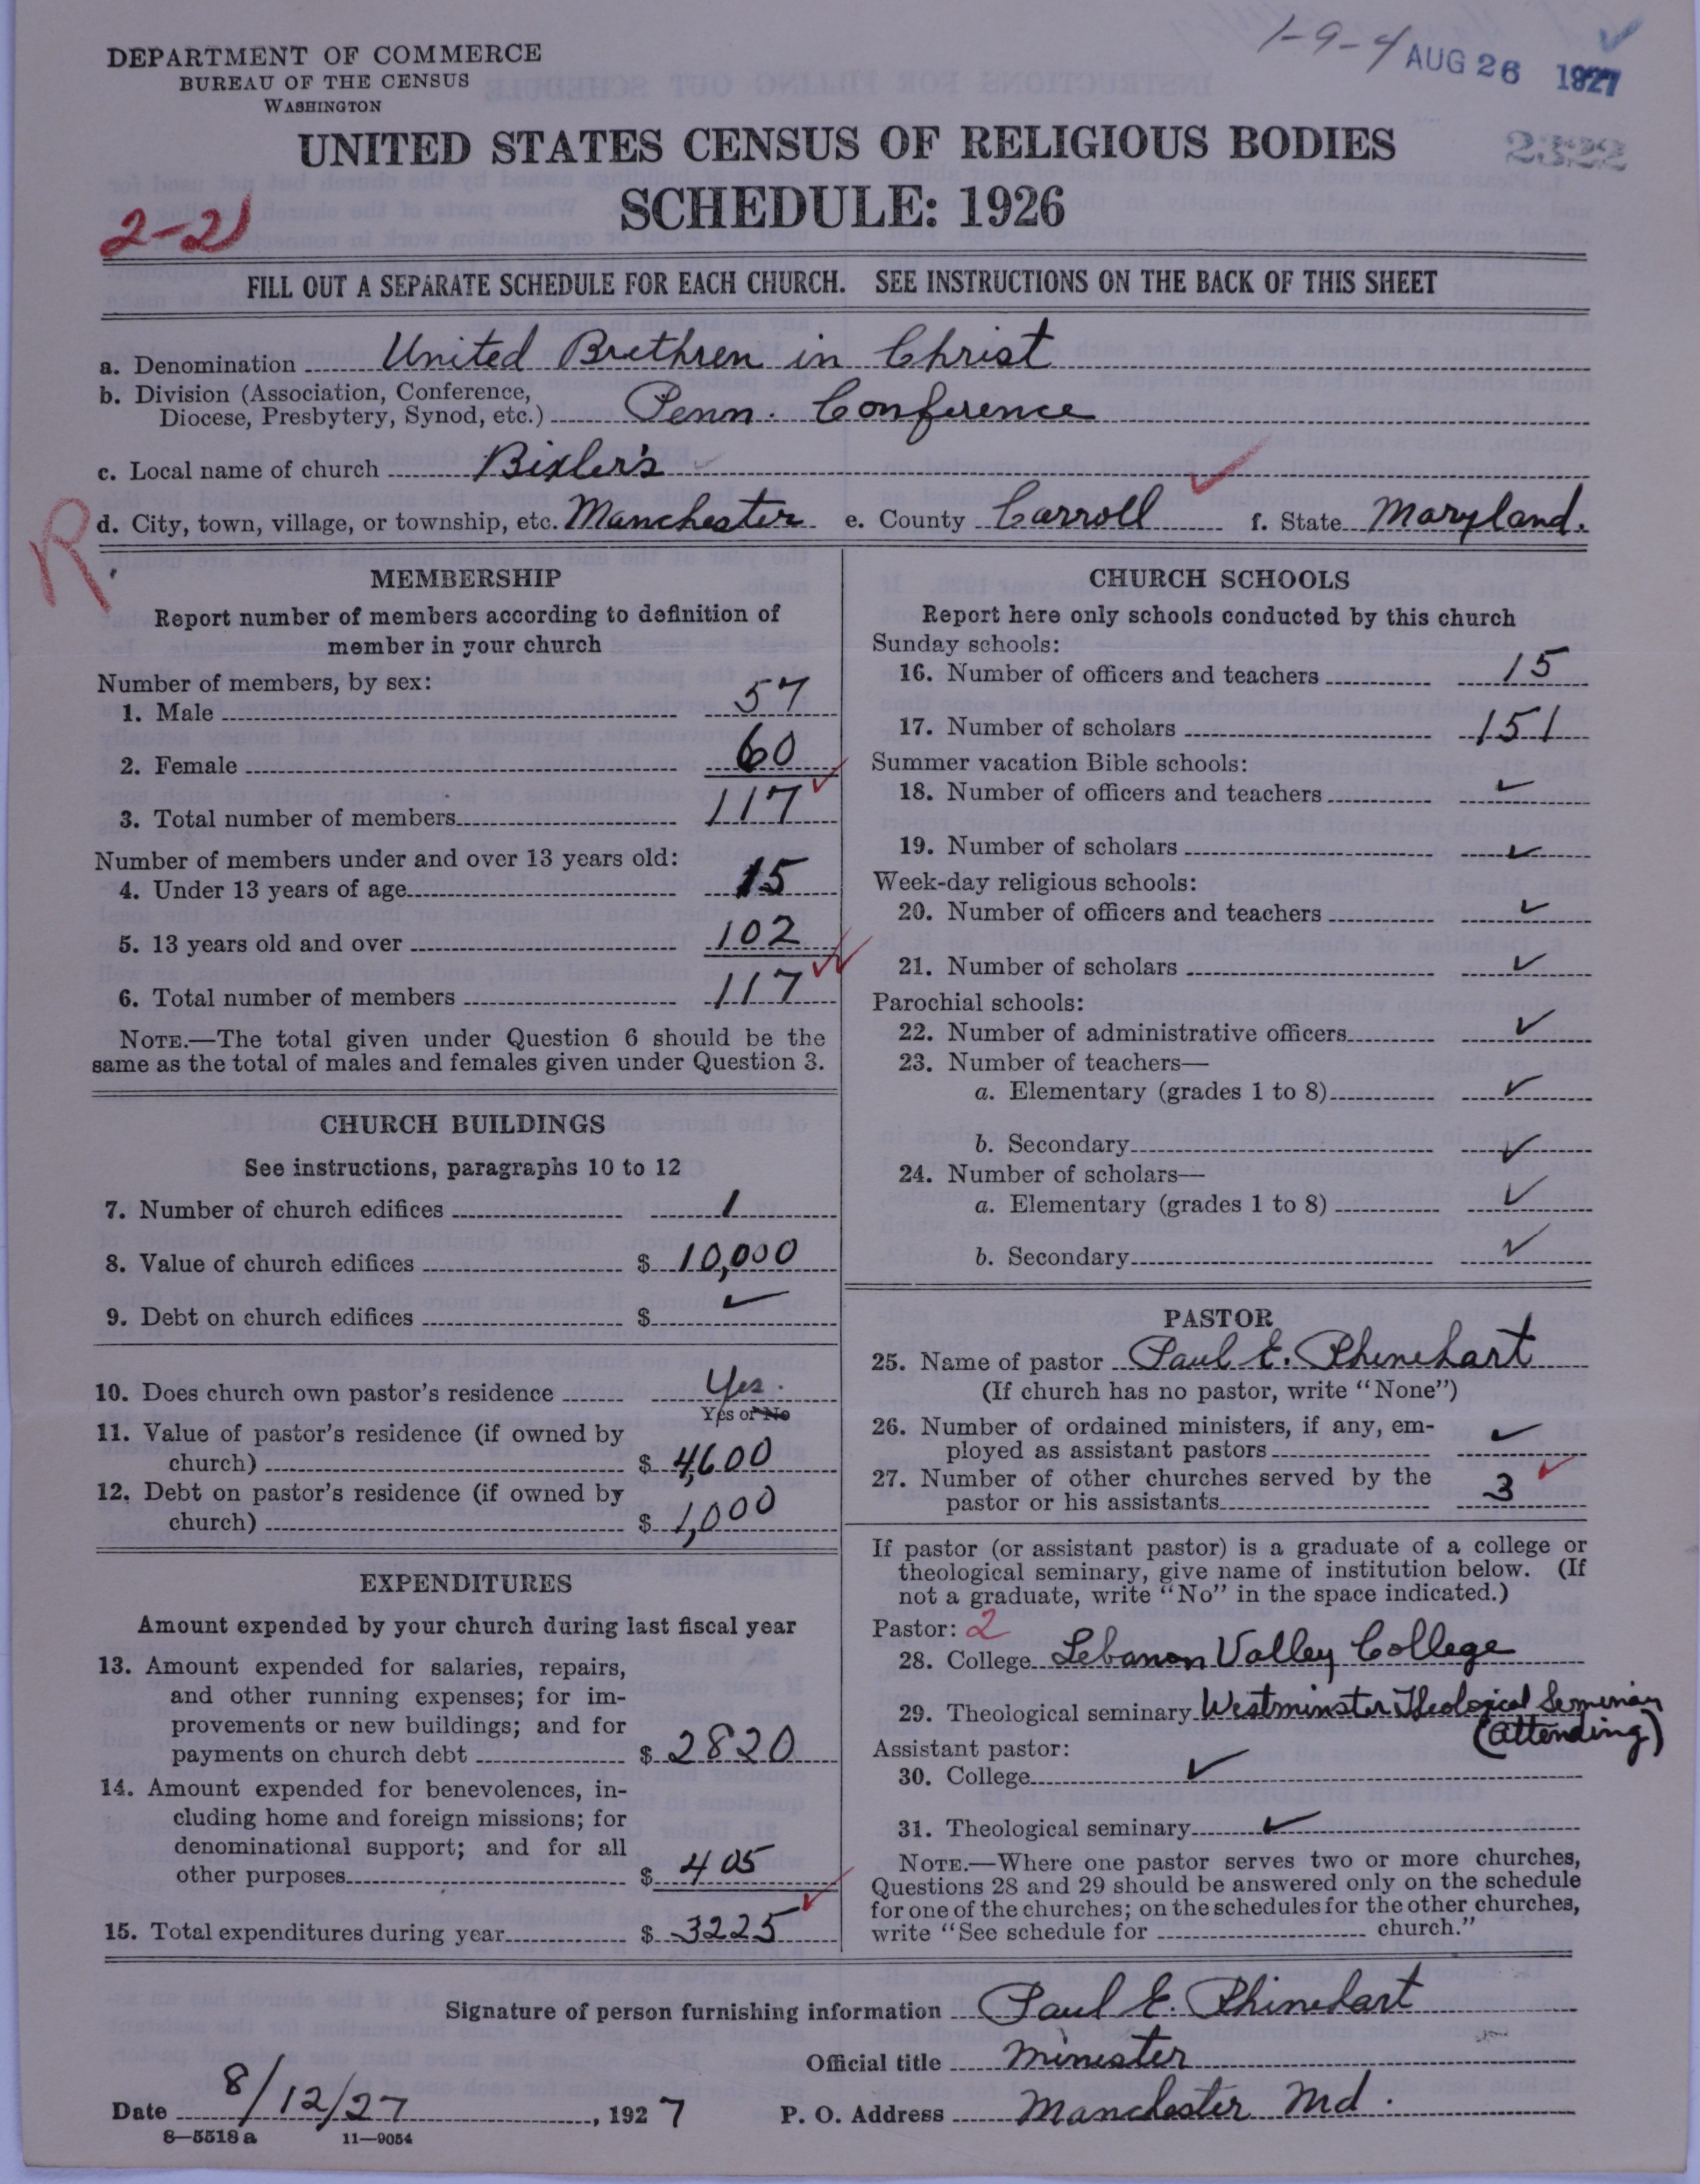 1-9-4 AUG 26 1927
DEPARTMENT OF COMMERCE
BUREAU OF THE CENSUS
WASHINGTON
UNITED STATES CENSUS OF RELIGIOUS BODIES
2522
SCHEDULE: 1926
2-21
FILL OUT A SEPARATE SCHEDULE FOR EACH CHURCH. SEE INSTRUCTIONS ON THE BACK OF THIS SHEET
a. Denomination United Brethren in Christ
b. Division (Association, Conference,
Diocese, Presbytery, Synod, etc.) Penn. Conference
c. Local name of church Bixler's
d. City, town, village, or township, etc. Manchester e. County Carroll f. State Maryland.
R
MEMBERSHIP
Report number of members according to definition of
member in your church
Number of members, by sex:
1. Male 57
2. Female 60
3. Total number of members 117
Number of members under and over 13 years old:
4. Under 13 years of age 15
5. 13 years old and over 102
6. Total number of members 117
NOTE.—The total given under Question 6 should be the
same as the total of males and females given under Question 3.
CHURCH BUILDINGS
See instructions, paragraphs 10 to 12
7. Number of church edifices 1
8. Value of church edifices $ 10,000
9. Debt on church edifices $ ✓
10. Does church own pastor's residence Yes.
Yes or No
11. Value of pastor's residence (if owned by
church) $ 4,600
12. Debt on pastor's residence (if owned by
church) $ 1,000
EXPENDITURES
Amount expended by your church during last fiscal year
13. Amount expended for salaries, repairs,
and other running expenses; for im-
provements or new buildings; and for
payments on church debt $ 2820
14. Amount expended for benevolences, in-
cluding home and foreign missions; for
denominational support; and for all
other purposes $ 405
15. Total expenditures during year $ 3225
CHURCH SCHOOLS
Report here only schools conducted by this church
Sunday schools:
16. Number of officers and teachers 15
17. Number of scholars 151
Summer vacation Bible schools:
18. Number of officers and teachers ✓
19. Number of scholars ✓
Week-day religious schools:
20. Number of officers and teachers ✓
21. Number of scholars ✓
Parochial schools:
22. Number of administrative officers ✓
23. Number of teachers—
a. Elementary (grades 1 to 8) ✓
b. Secondary ✓
24. Number of scholars—
a. Elementary (grades 1 to 8) ✓
b. Secondary ✓
PASTOR
25. Name of pastor Paul E. Rhinehart
(If church has no pastor, write "None")
26. Number of ordained ministers, if any, em-
ployed as assistant pastors ✓
27. Number of other churches served by the
pastor or his assistants 3
If pastor (or assistant pastor) is a graduate of a college or
theological seminary, give name of institution below. (If
not a graduate, write "No" in the space indicated.)
Pastor: 2
28. College Lebanon Valley College
29. Theological seminary Westminster Theological Seminary
(attending)
Assistant pastor:
30. College ✓
31. Theological seminary ✓
NOTE.—Where one pastor serves two or more churches,
Questions 28 and 29 should be answered only on the schedule
for one of the churches; on the schedules for the other churches,
write "See schedule for church."
Signature of person furnishing information Paul E. Rhinehart
Official title Minester
Date 8/12/27, 1927 P. O. Address Manchester Md.
8—5518 a 11—9054